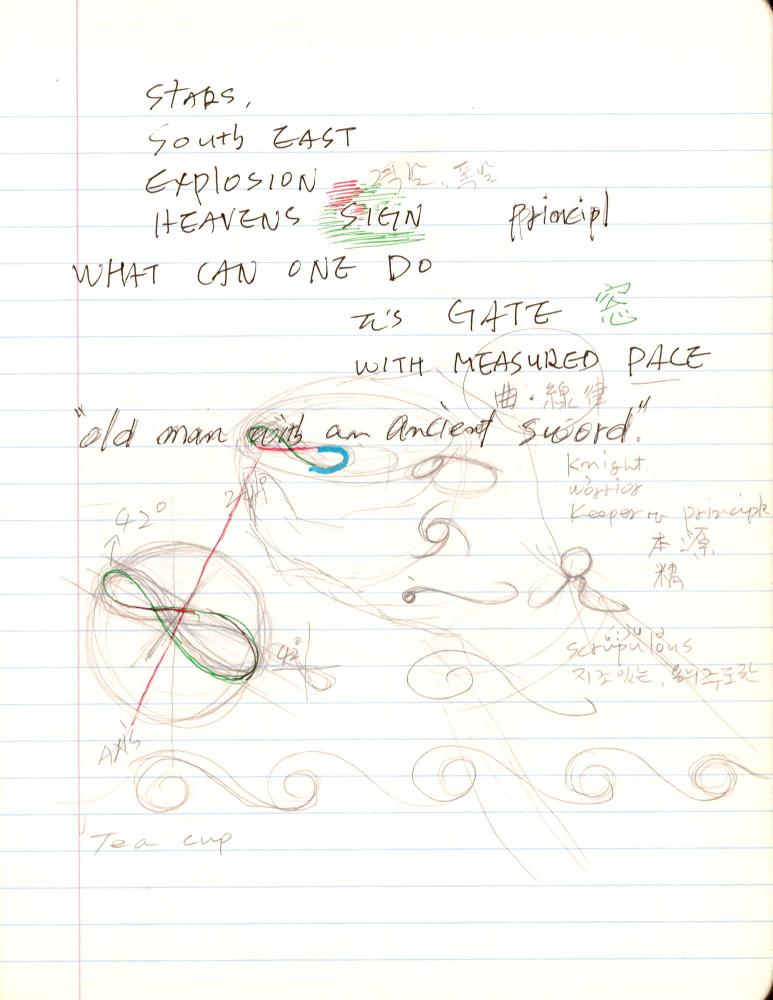 STARS,
South EAST
EXPlOSION 격발, 폭발
HEAVENS SIGN Pprincipl
WHAT CAN ONE DO
GATE 窓
WITH MEASURED PACE
曲・線 律
"old man with an Ancient sword."
Knight
worrior
Keeper principle
本 源
精
42°
42°
scrupulous
지조있는, 용의주도한
AXIS
Tea cup